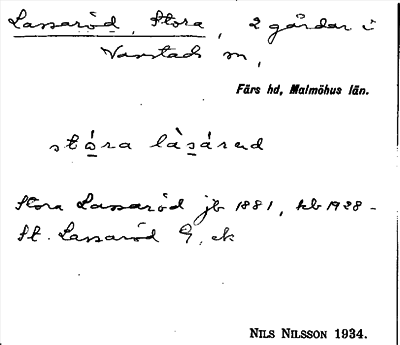 Lassaröd, Stora, 2 gårdar i
Vanstads sn,
Färs hd, Malmöhus län.
stóra làsárud
Stora Lassaröd jb 1881, kb 1928 -
St. Lassaröd G, ek
NILS NILSSON 1934.